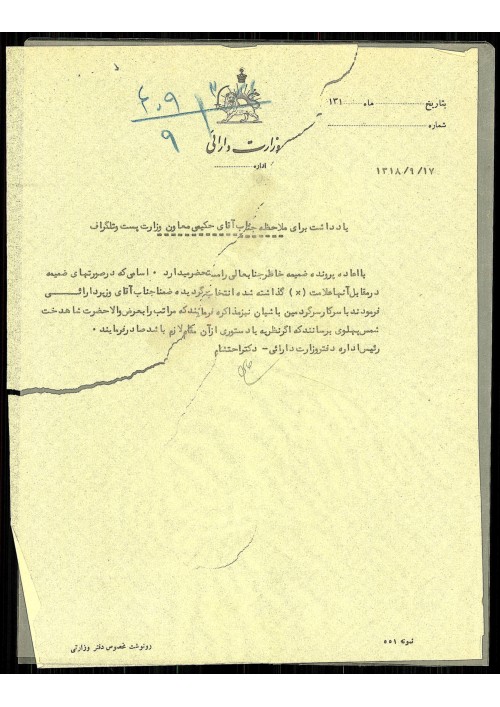 ۴۰۹
۹
وزارت دارائی
اداره
بتاریخ ماه ۱۳۱
شماره
۱۳۱۸/۹/۱۷
یادداشت برای ملاحظه جناب آقای حکیمی معاون وزارت پست وتلگراف
با اعاده پرونده ضمیمه خاطر جنابعالی را مستحضر میدارد ۰ اسامی که در صورتهای ضمیمه
در مقابل آنها علامت (×) گذاشته شده انتخاب گردیده ضمنا جناب آقای وزیر دارائی
فرمودند با سرکار سرگرد مین باشیان نیز مذاکره فرمایند که مراتب را بعرض والاحضرت شاهدخت
شمس پهلوی برسانند که اگر نظریه یا دستوری از آن مقام لازم باشد صادر فرمایند ۰
رئیس اداره دفتر وزارت دارائی - دکتر احتشام
نمونه ۵۵۱
رونوشت مخصوص دفتر وزارتی